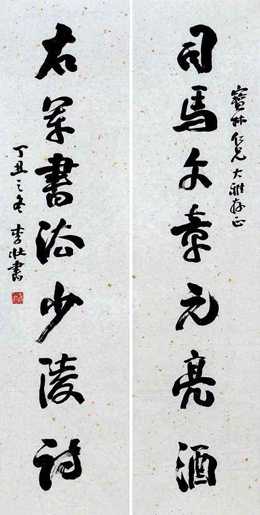 寶林仁兄大雅存正
司馬文章元亮酒
右軍書法少陵詩
丁丑之冬李壯書